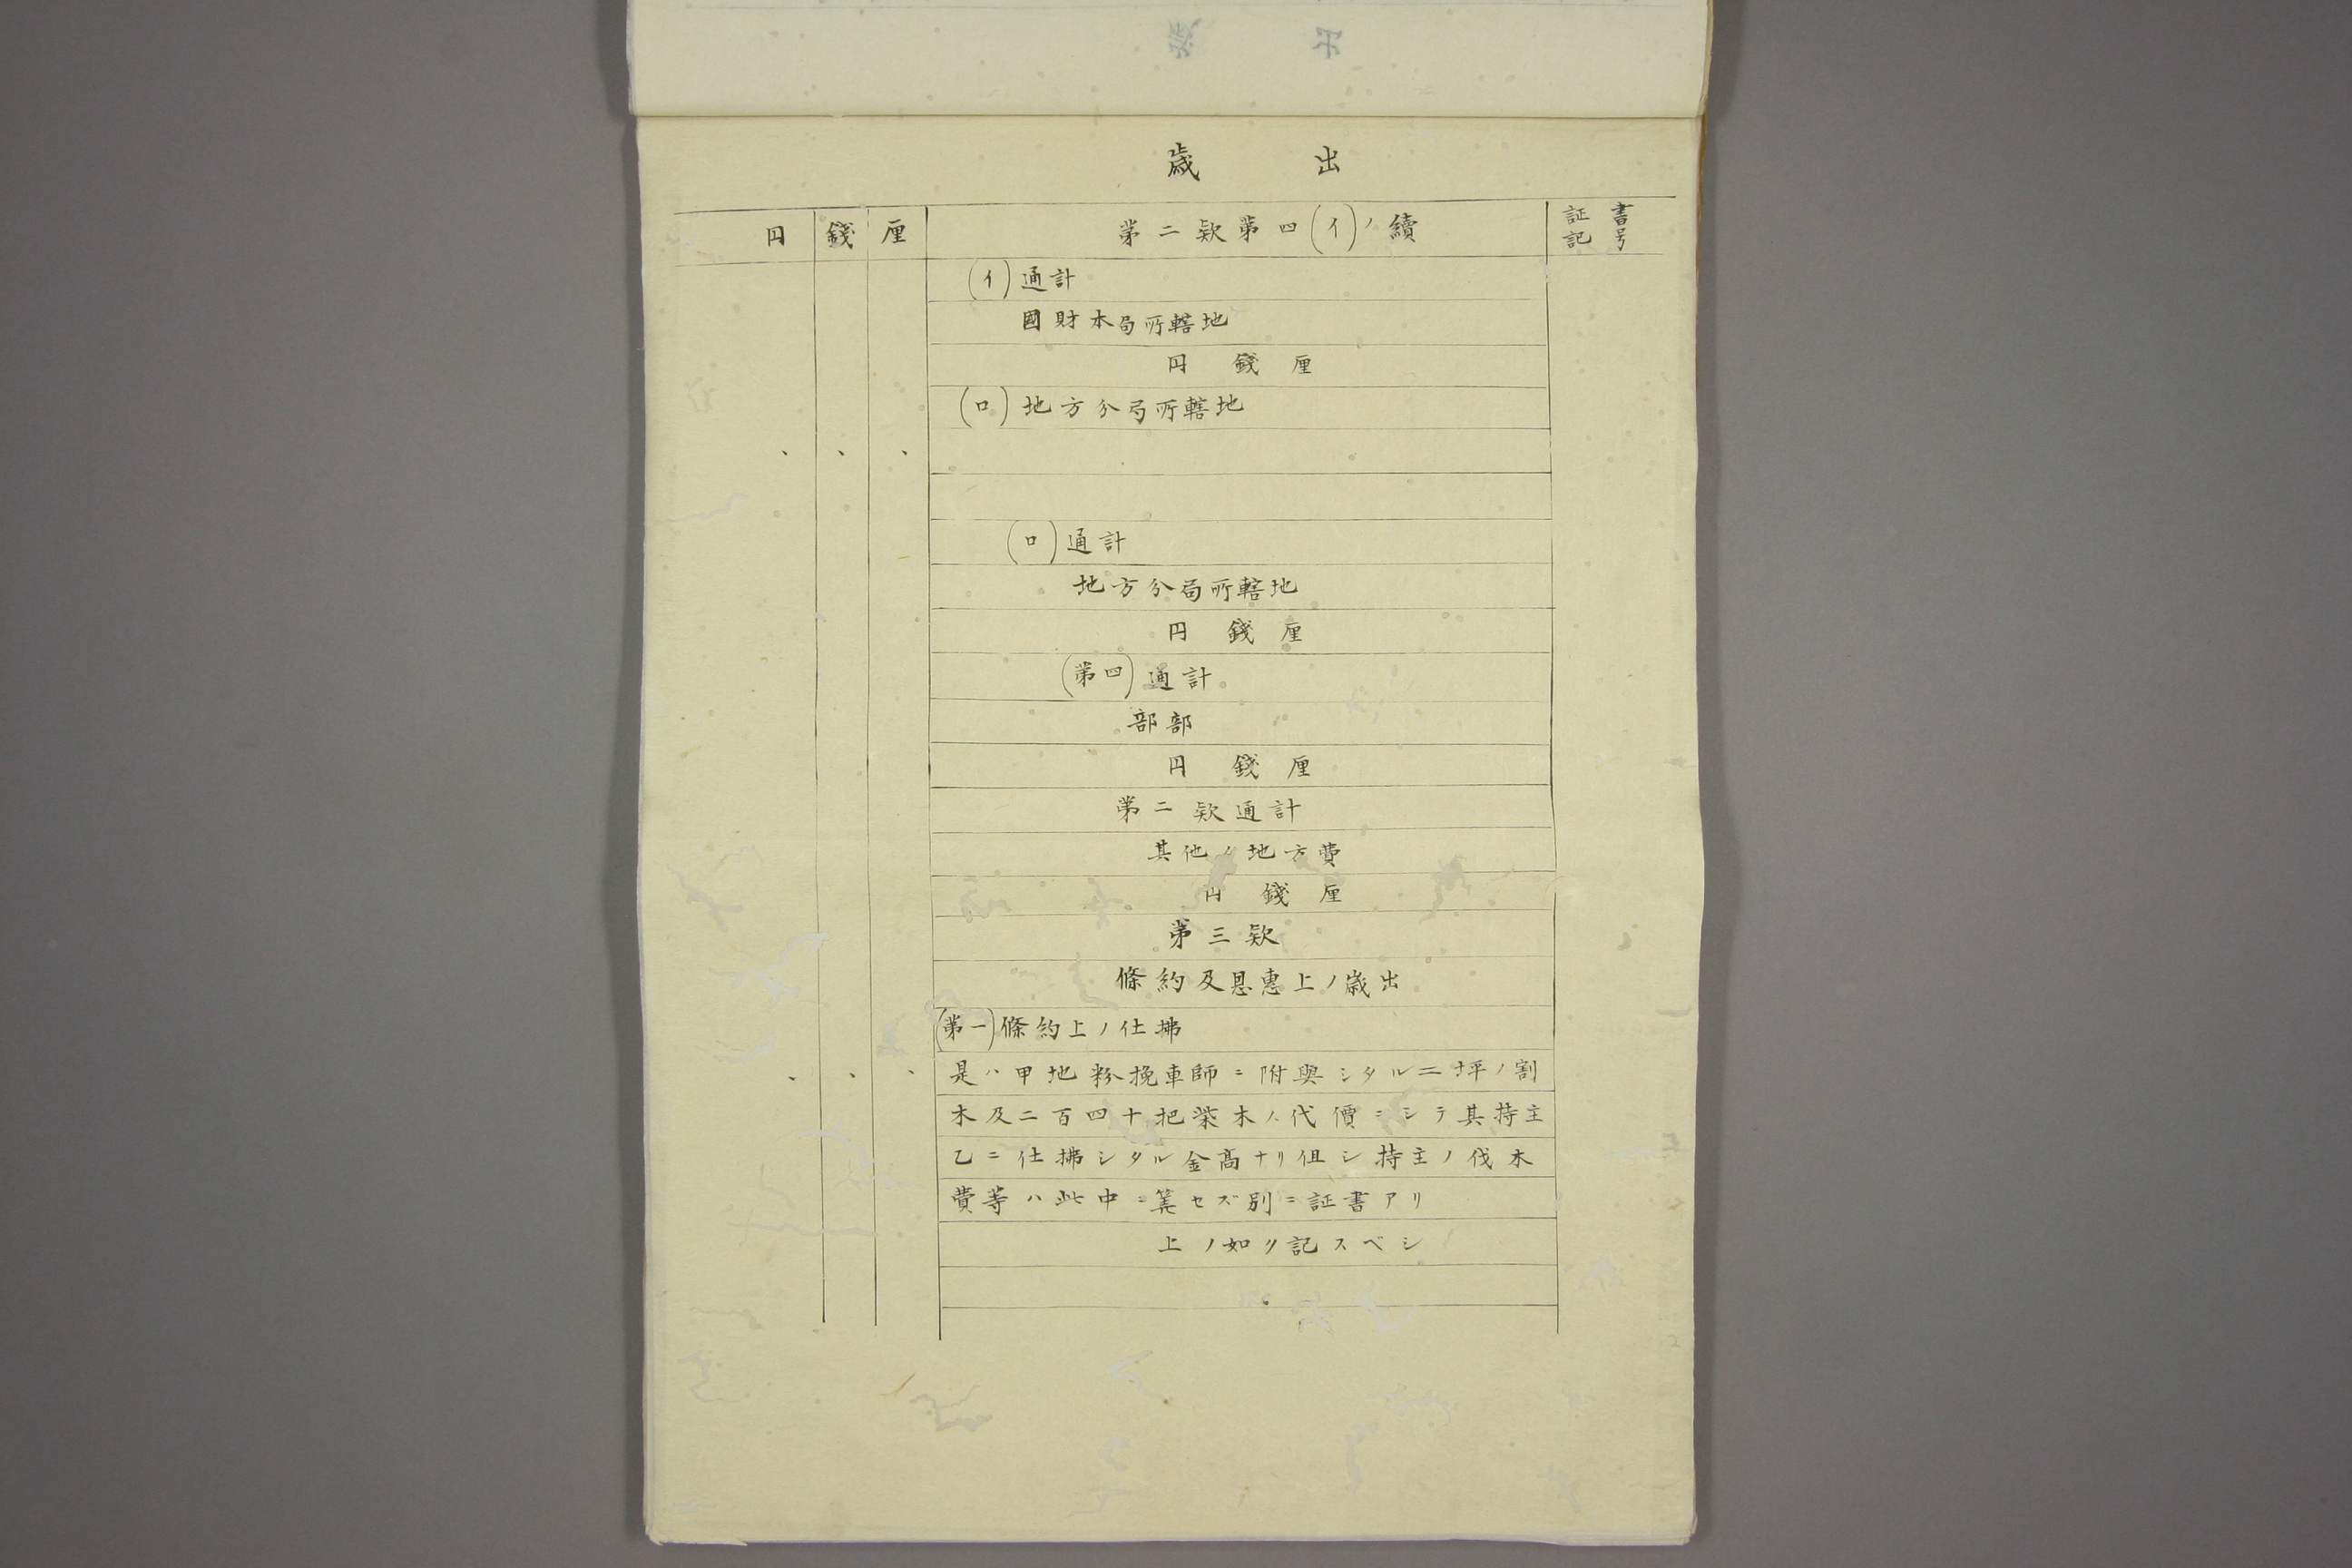 歳出
円 錢 厘 第二欵第四(イ)ノ續 証書記号
(イ)通計
國財本局所轄地
円 錢 厘
(ロ)地方分局所轄地
、 、 、
(ロ)通計
地方分局所轄地
円 錢 厘
(第四)通計
部部
円 錢 厘
第二欵通計
其他ノ地方費
円 錢 厘
第三欵
條約及恩惠上ノ歳出
(第一)條約上ノ仕拂
、 、 、 是ハ甲地粉挽車師ニ附與シタル二坪ノ割
木及二百四十把柴木ノ代價ニシテ其持主
乙ニ仕拂シタル金高ナリ但シ持主ノ伐木
費等ハ此中ニ筭セズ別ニ証書アリ
上ノ如ク記スベシ